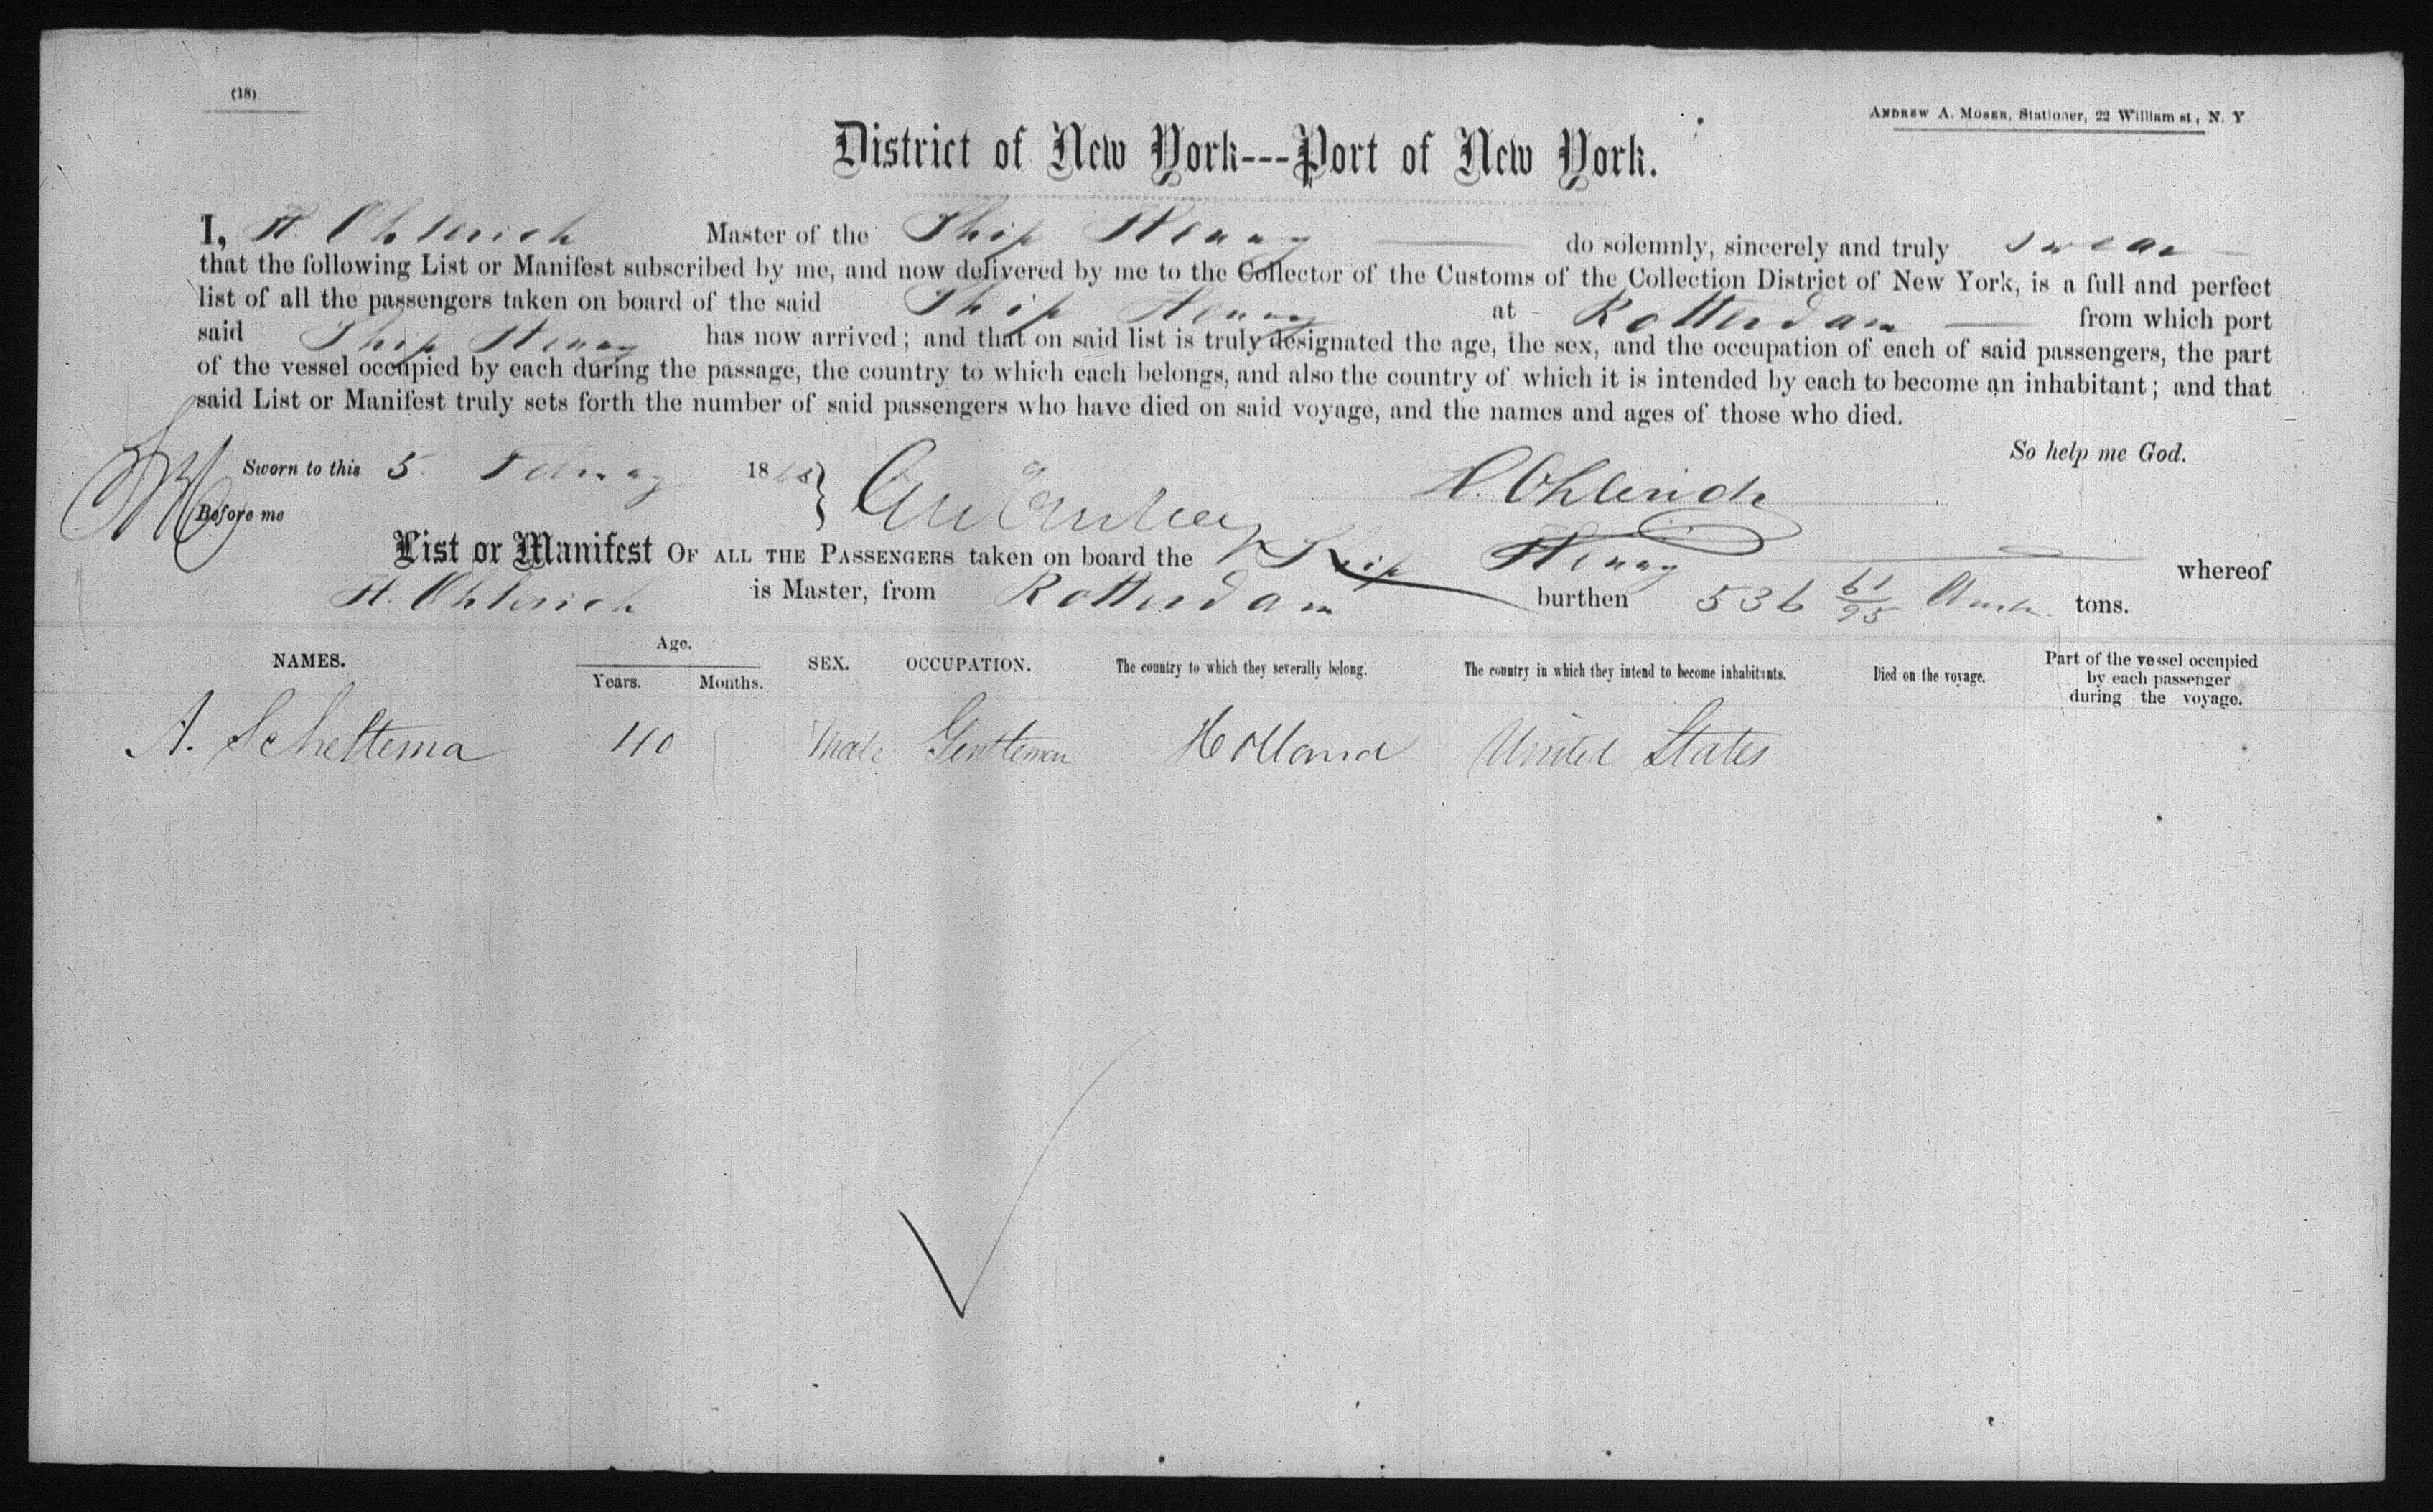 (18)
ANDREW A. MOSER, Stationer, 22 William st, N. Y
District of New York---Port of New York.
I, H. Ohlerich Master of the Ship Henry do solemnly, sincerely and truly swear
that the following List or Manifest subscribed by me, and now delivered by me to the Collector of the Customs of the Collection District of New York, is a full and perfect
list of all the passengers taken on board of the said Ship Henry at Rotterdam from which port
said Ship Henry has now arrived; and that on said list is truly designated the age, the sex, and the occupation of each of said passengers, the part
of the vessel occupied by each during the passage, the country to which each belongs, and also the country of which it is intended by each to become an inhabitant; and that
said List or Manifest truly sets forth the number of said passengers who have died on said voyage, and the names and ages of those who died.
So help me God.
Sworn to this 5 February 18
H. Ohlerich
Before me
List or Manifest OF ALL THE PASSENGERS taken on board the Ship Henry whereof
H. Ohlerich is Master, from Rotterdam burthen 536 61/95 tons.
NAMES. Age. Years. Months. SEX. OCCUPATION. The country to which they severally belong. The country in which they intend to become inhabitants. Died on the voyage. Part of the vessel occupied by each passenger during the voyage.
A. Scheltema 40 Male Gentleman Holland United States